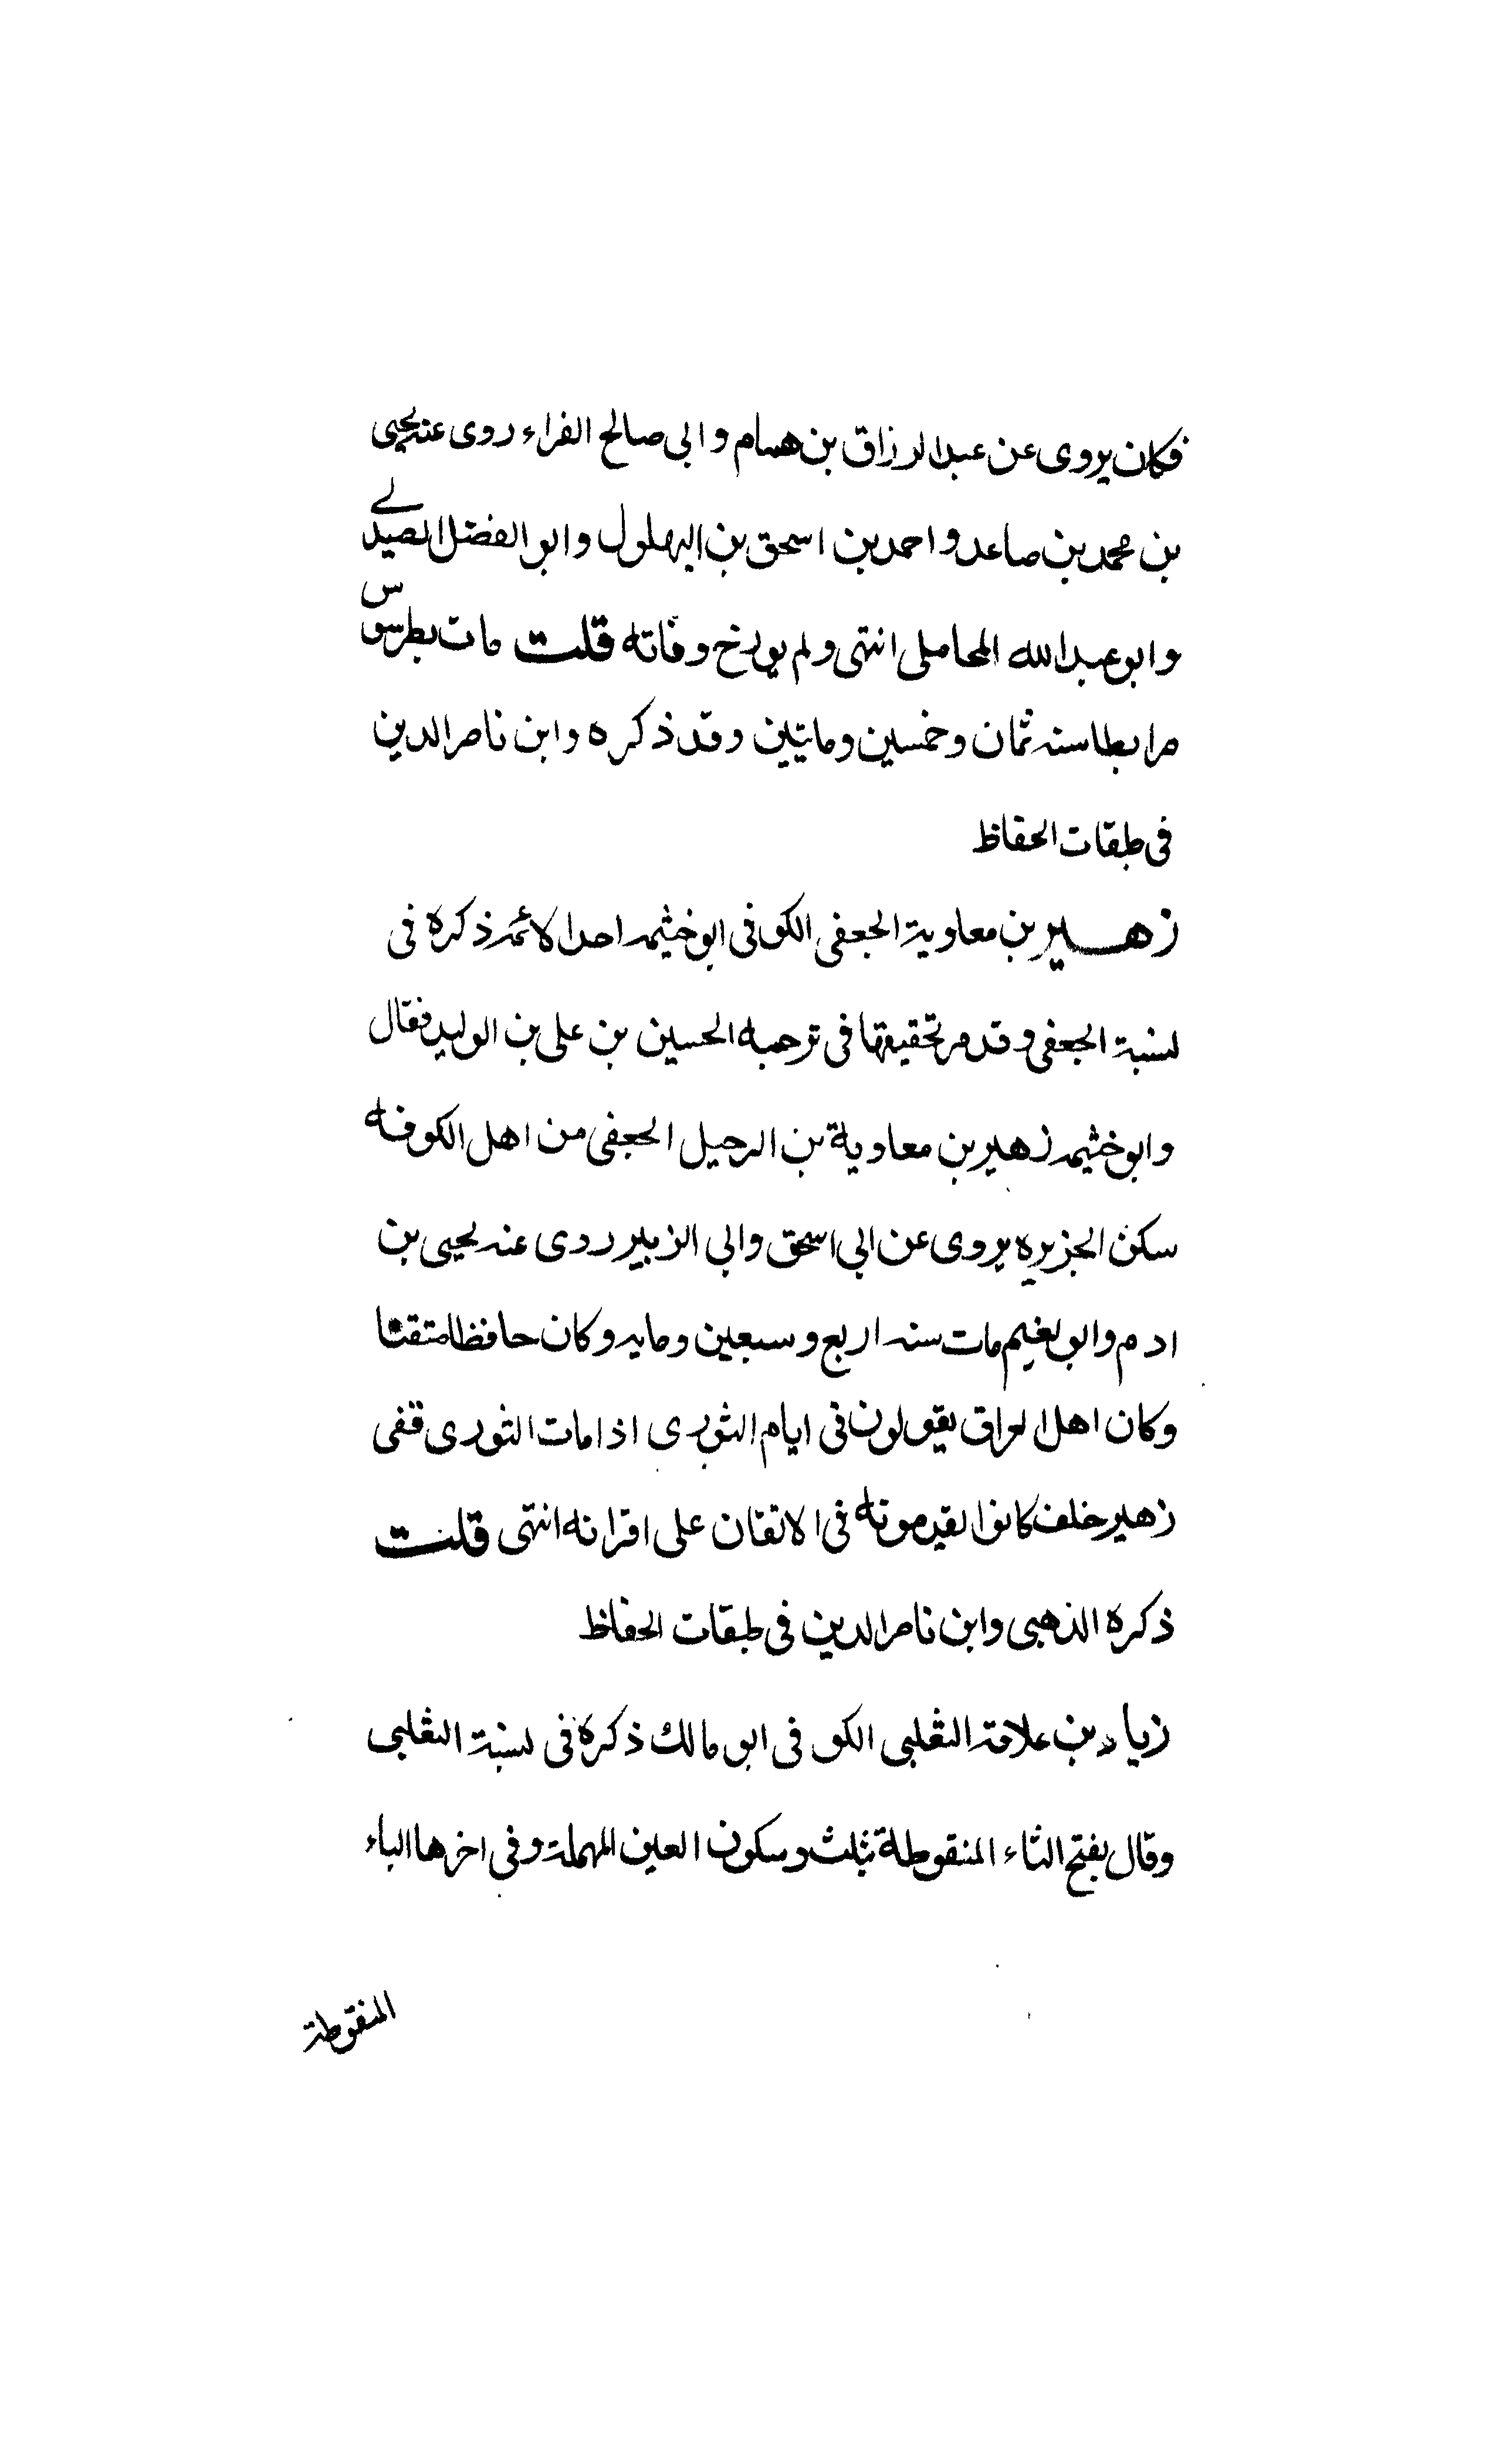 فكان يروى عن عبد الرزاق بن همام وابى صالح الفراء روى عنه يحيى
بن محمد بن صاعد واحمد بن اسحق بن البهلول وابو الفضل الصيدلے
وابو عبد الله المحاملى انتهى ولم يورخ وفاته قلت مات بطرسوس
مرابطا سنه ثمان وخمسين وماتيين وقد ذكره وابن ناصر الدين
فى طبقات الحفاظ
زهير بن معاوية الجعفى الكوفى ابو خثيمه احد الائمه ذكره فى
لسنبة الجعفى وقد مر تحقيقها فى ترجمه الحسين بن على بن الوليد فقال
وابو خثيمه زهير بن معاوية بن الرحيل الجعفى من اهل الكوفه
سكن الجزيره يروى عن ابى اسحق وابى الزبير ردى عنه يحيى بن
ادم وابو نعيم مات سنه اربع وسبعين ومايه وكان حافظا متقنا
وكان اهل العراق يقولون فى ايام الثورى اذا مات الثورى ففى
زهير خلف كانوا يقدمونه فى الاتقان على اقرانه انتهى قلت
ذكره الذهبى وابن ناصر الدين فى طبقات الحفاظ
زياد بن علاقة الثعلبى الكوفى ابو مالك ذكره فى لسنبة الثعلبى
وقال بفتح الثاء المنقوطة بثلث وسكون العين المهملة وفى اخرها الباء
المنقوطة